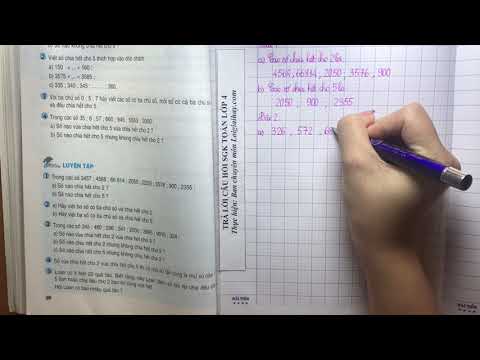 a) Số nào chia hết cho 5 ?
2 Viết số chia hết cho 5 thích hợp vào chỗ chấm :
a) 150 < ... < 160 ;
b) 3575 < ... < 3585 ;
c) 335 ; 340 ; 345 ; 360.
3 Với ba chữ số 0 ; 5 ; 7 hãy viết các số có ba chữ số
và đều chia hết cho 5.
4 Trong các số 35 ; 8 ; 57 ; 660 ; 945 ; 5553 ; 3000
a) Số nào vừa chia hết cho 5 vừa chia hết cho 2 ?
b) Số nào chia hết cho 5 nhưng không chia hết cho 2 ?
LUYỆN TẬP
1 Trong các số 3457 ; 4568 ; 66 814 ; 2050 ; 2229 ; 3576 ; 900 ; 2355
a) Số nào chia hết cho 2 ?
b) Số nào chia hết cho 5 ?
2 a) Hãy viết ba số có ba chữ số và chia hết cho 2.
b) Hãy viết ba số có ba chữ số và chia hết cho 5.
3 Trong các số 345 ; 480 ; 296 ; 341 ; 2000 ; 3995 ; 9010 ; 324 :
a) Số nào vừa chia hết cho 2 vừa chia hết cho 5 ?
b) Số nào chia hết cho 2 nhưng không chia hết cho 5 ?
c) Số nào chia hết cho 5 nhưng không chia hết cho 2 ?
4 Số vừa chia hết cho 2 vừa chia hết cho 5 thì có chữ số tận cùng là chữ số
5 Loan có ít hơn 20 quả táo. Biết rằng, nếu Loan đem số táo đó chia đều cho
5 bạn hoặc chia đều cho 2 bạn thì cũng vừa hết.
Hỏi Loan có bao nhiêu quả táo ?
96
TRẢ LỜI CÂU HỎI SGK TOÁN LỚP 4
Thực hiện: Ban chuyên môn Loigiaihay.com
a) Các số chia hết cho 2 là:
4568, 66814, 2050, 3576, 900
b) Các số chia hết cho 5 là:
2050, 900, 2355
Bài 2
a) 326, 572,
HẢI TIẾN
HẢI TIẾN